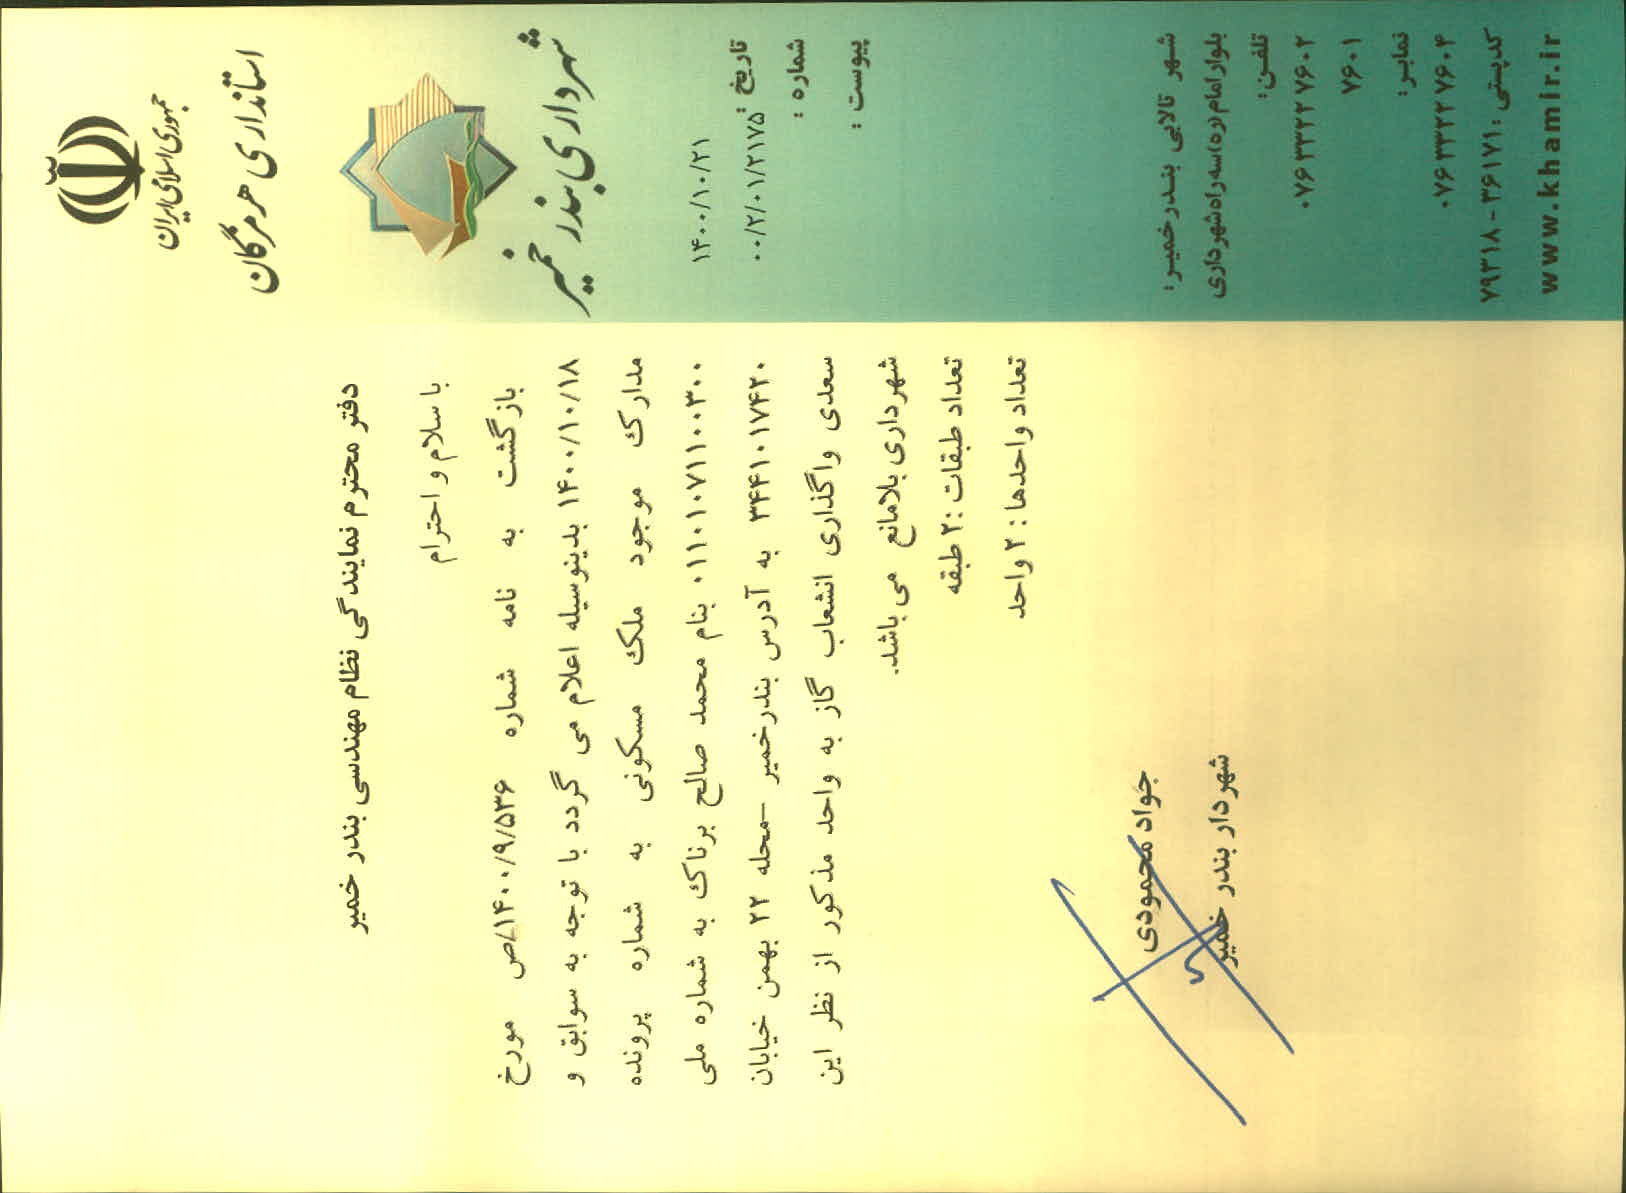 جمهوری اسلامی ایران
استانداری هرمزگان
شهرداری بندر خمیر
تاریخ :
۱۴۰۰/۱۰/۲۱
شماره :
۰۰/۲/۰۱/۲۱۷۵
پیوست :
دفتر محترم نمایندگی نظام مهندسی بندر خمیر
با سلام و احترام
بازگشت به نامه شماره ۱۴۰۰/۹/۵۳۶/ص مورخ
۱۴۰۰/۱۰/۱۸ بدینوسیله اعلام می گردد با توجه به سوابق و
مدارک موجود ملک مسکونی به شماره پرونده
۰۱۱۰۱۰۷۱۱۰۰۳۰۰ بنام محمد صالح برناک به شماره ملی
۳۴۴۱۰۱۷۴۲۰ به آدرس بندرخمیر -محله ۲۲ بهمن خیابان
سعدی واگذاری انشعاب گاز به واحد مذکور از نظر این
شهرداری بلامانع می باشد.
تعداد طبقات :۲ طبقه
تعداد واحدها : ۲ واحد
جواد محمودی
شهردار بندر خمیر
شهر تالابی بندرخمیر:
بلوار امام(ره)سه راه شهرداری
تلفن:
۰۷۶۳۳۲۲۷۶۰۲
۷۶۰۱
نمابر:
۰۷۶۳۳۲۲۷۶۰۴
کدپستی : ۳۶۱۷۱ - ۷۹۳۱۸
www.khamir.ir